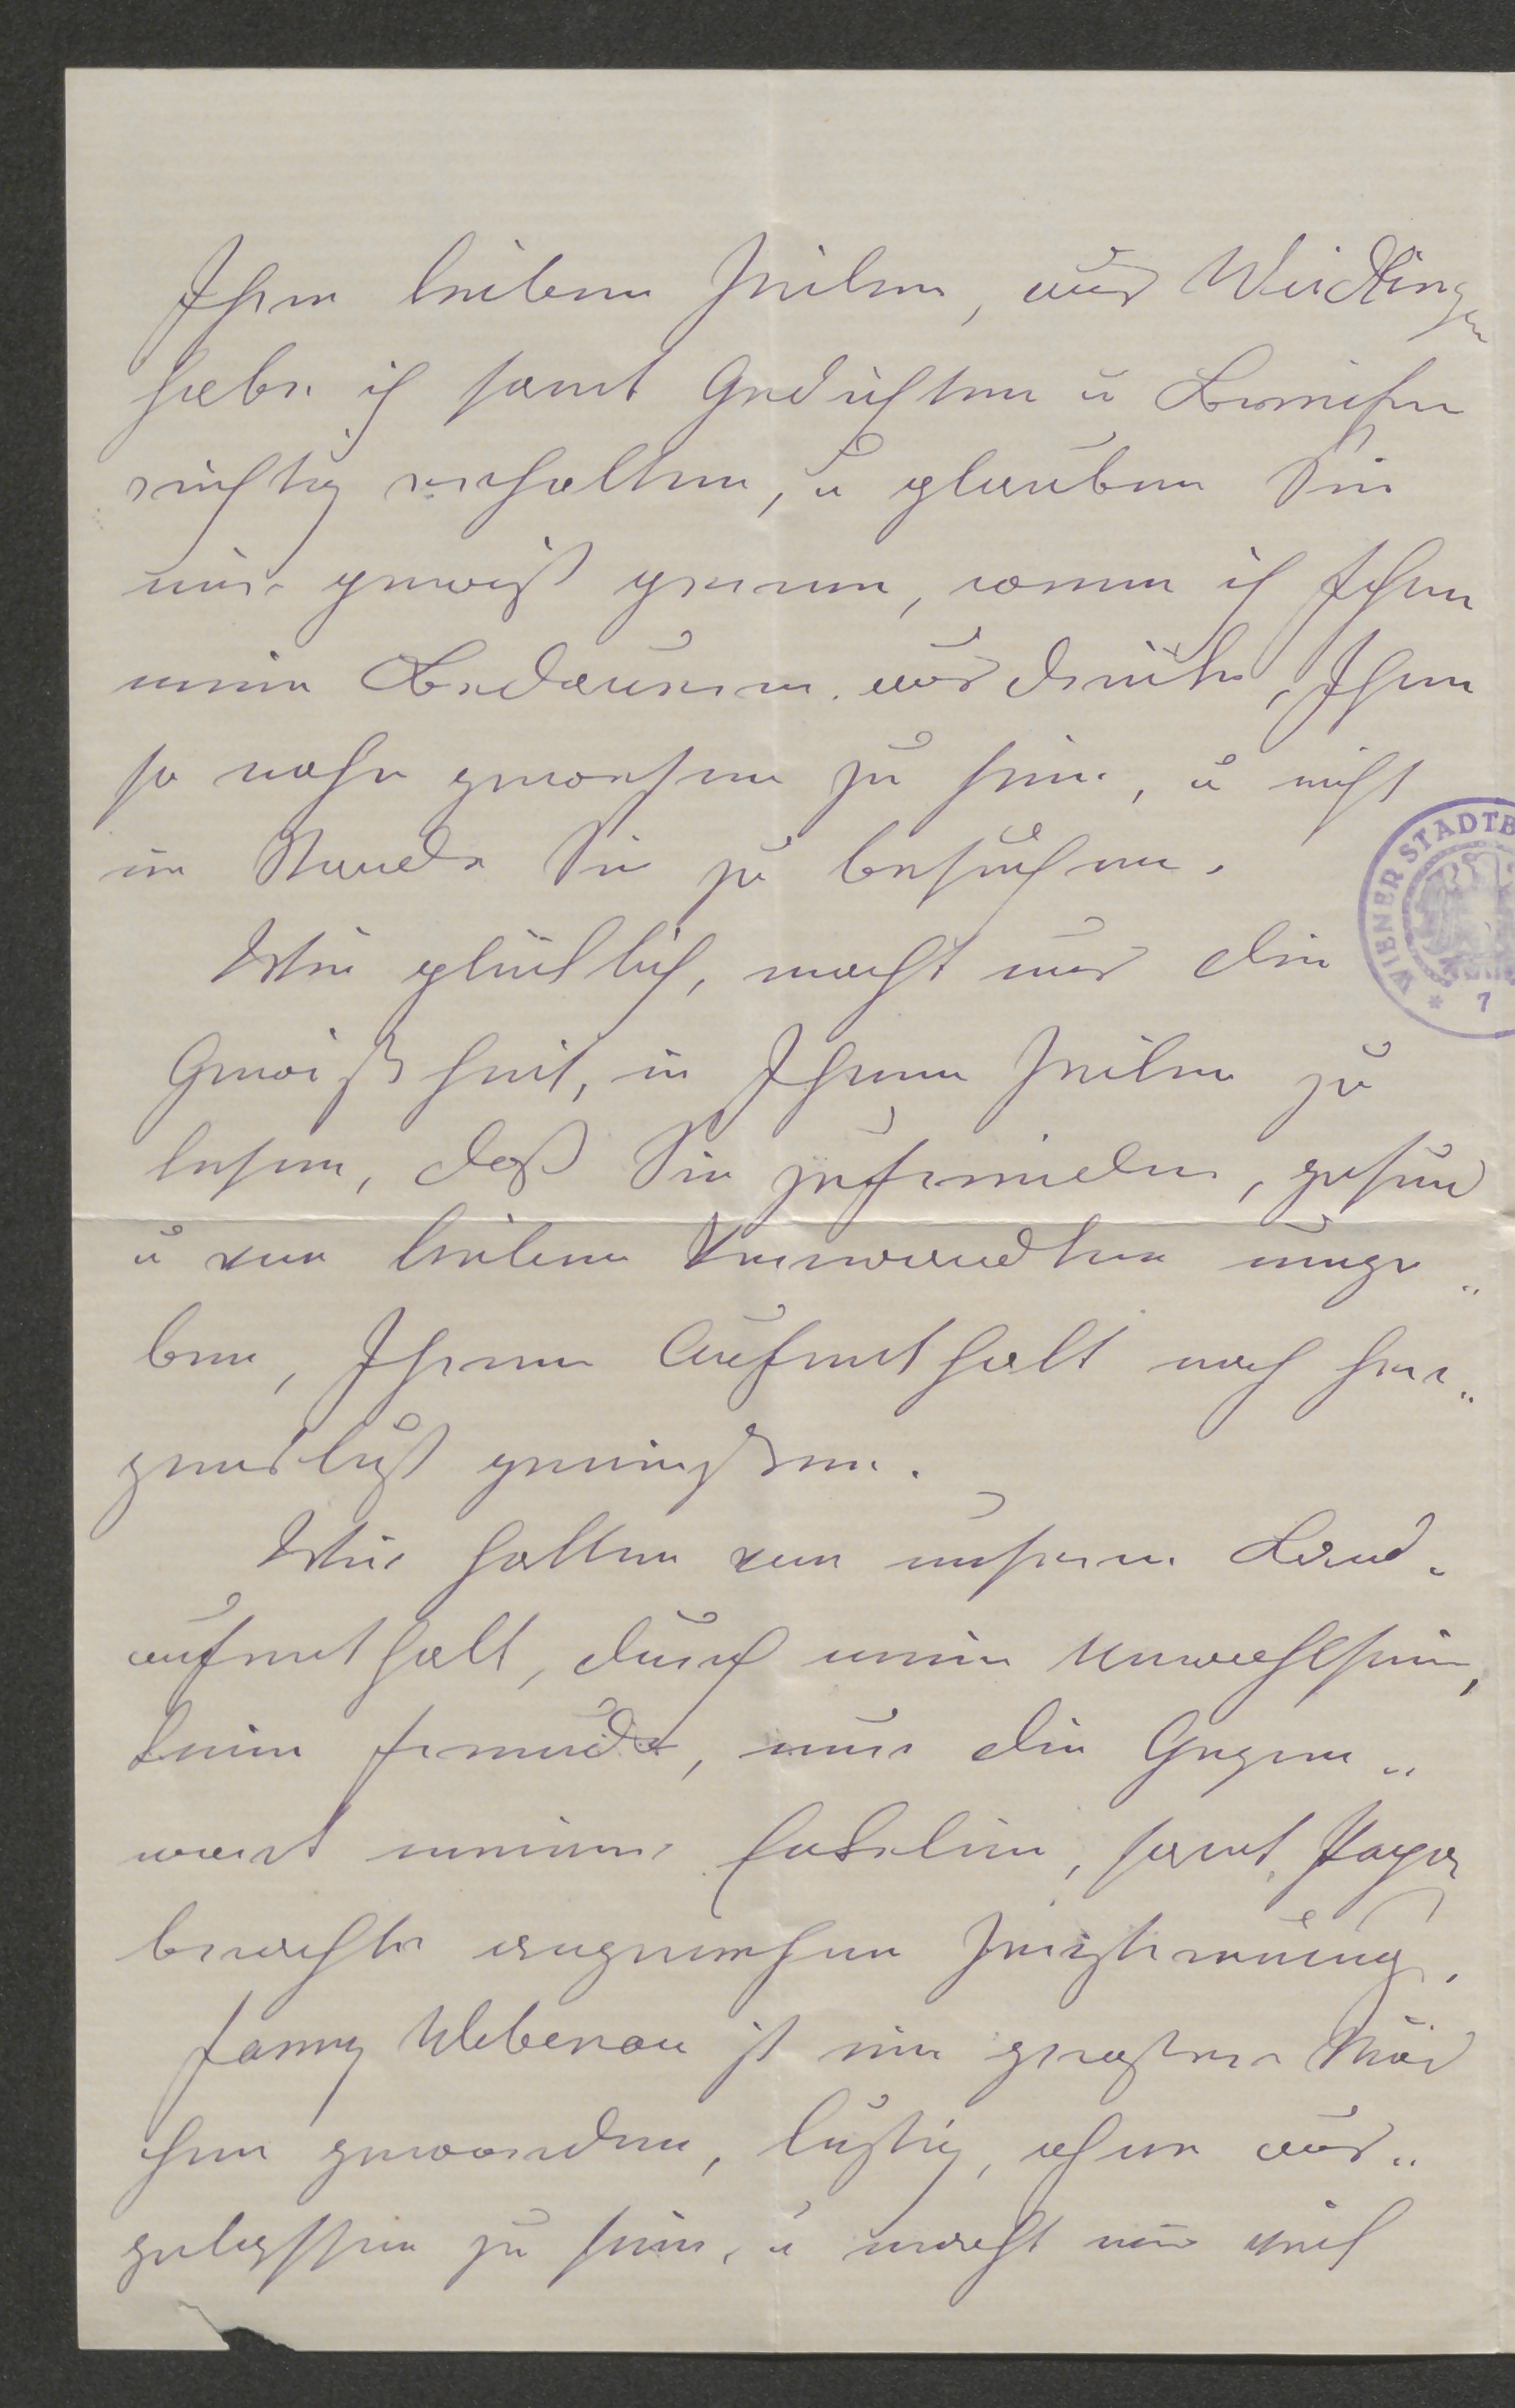 Ihre lieben Zeilen, aus Weidlingen
habe ich samt Gedichten u
richtig erhalten, u glauben Sie
mir gewiß gerne, wenn ich Ihnen
mein Bedauern ausdrücke, Ihnen
so nahe gewesen zu sein, u nicht
im Stande Sie zu besuchen.
Wie glücklich, macht uns die
Gewißheit, in Ihren Zeilen zu
lesen, daß Sie zufrieden, gesund
u von lieben Verwandten umge„
ben, Ihren Aufenthalt nach Her„
zenslust genießen.
Wir hatten von unserem Land„
aufenthalt, durch mein Unwohlsein,
keine Freude, nur die Gegen„
wart meiner, samt
brachte angenehme Zerstreuung.
Fanny Webenau ist ein großes Mäd
chen geworden, lustig, ohne aus„
gelassen zu sein, u macht mir viel
WIENER STADTB
* 7